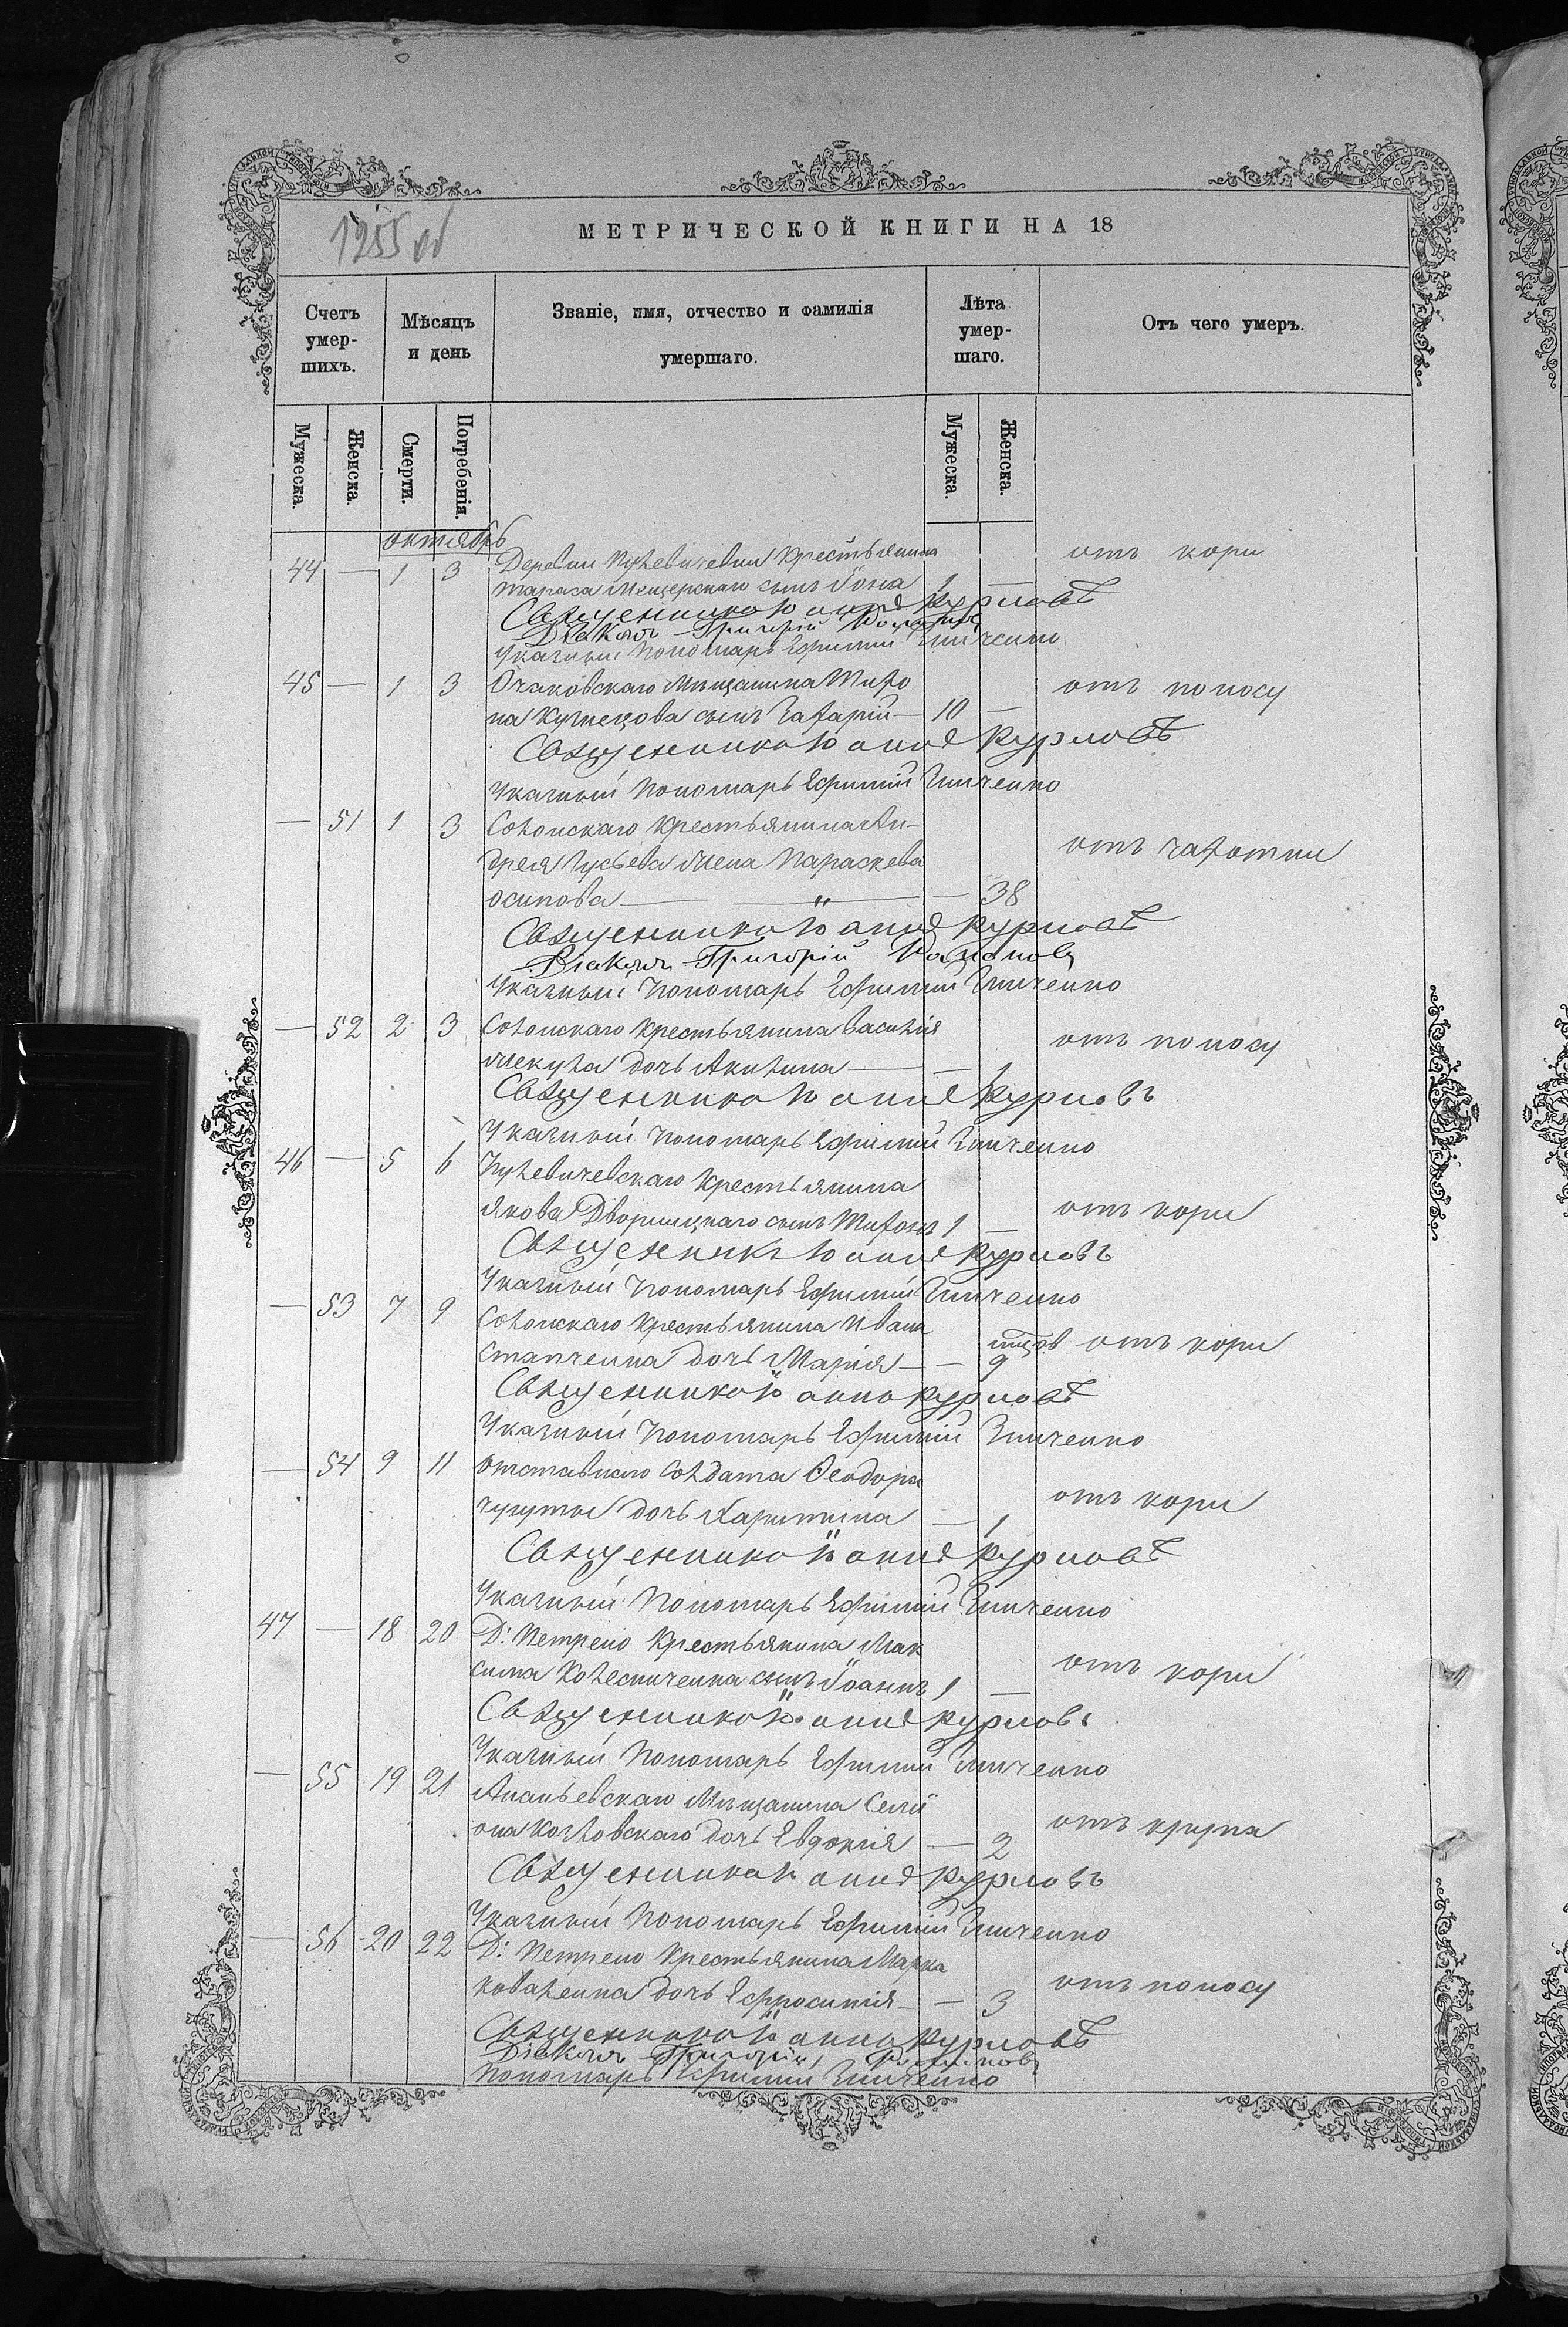 1255 об
МЕТРИЧЕСКОЙ КНИГИ НА 18
Счетъ умершихъ.
Мѣсяцъ и день
Званіе, имя, отчество и фамилія умершаго.
Лѣта умершаго.
Отъ чего умеръ.
Мужеска. Женска. Смерти. Погребенія. Мужеска. Женска.
октябрь
44 — 1 3 Деревни Кулевичевки крестьянина отъ кори
Тараса Мещерскаго сынъ Іона 1 —
Священникъ Іоаннъ Курловъ
Діаконъ Григорій Романовъ
Указный Пономарь Ефимій Зинченко
45 — 1 3 Очаковскаго Мѣщанина Миро отъ поносу
на Кузнецова сынъ Захарій — 10 —
Священникъ Іоаннъ Курловъ
Указный Пономарь Ефимій Зинченко
— 51 1 3 Солонскаго крестьянина Ан-
дрея Гусьева жена Параскева отъ чахотки
осипова — — 38
Священникъ Іоаннъ Курловъ
Діаконъ Григорій Романовъ
Указный Пономарь Ефимій Зинченко
— 52 2 3 Солонскаго крестьянина Василія отъ поносу
дочь Акилина — — 1
Священникъ Іоаннъ Курловъ
Указный Пономарь Ефимій Зинченко
46 — 5 6 Кулевичевскаго крестьянина
Якова Дворницкаго сынъ Миронъ 1 — отъ кори
Священникъ Іоаннъ Курловъ
Указный Пономарь Ефимій Зинченко
— 53 7 9 Солонскаго крестьянина Ивана
Степченка дочь Марія — — 9 мцов отъ кори
Священникъ Іоаннъ Курловъ
Указный Пономарь Ефимій Зинченко
— 54 9 11 Отставнаго Солдата Ѳеодора
дочь Харитина — 1 отъ кори
Священникъ Іоаннъ Курловъ
Указный Пономарь Ефимій Зинченко
47 — 18 20 Д: Петрено крестьянина Мак
сима Колесниченка сынъ Іоаннъ 1 — отъ кори
Священникъ Іоаннъ Курловъ
Указный Пономарь Ефимій Зинченко
— 55 19 21 Ананьевскаго Мѣщанина Симі
она Козловскаго дочь Евдокія — 2 отъ крупа
Священникъ Іоаннъ Курловъ
Указный Пономарь Ефимій Зинченко
— 56 20 22 Д: Петрено крестьянина Марка
Коваленка дочь Ефросинія — — 3 отъ поносу
Священникъ Іоаннъ Курловъ
Діаконъ Григорій Романовъ
Пономарь Ефимій Зинченко